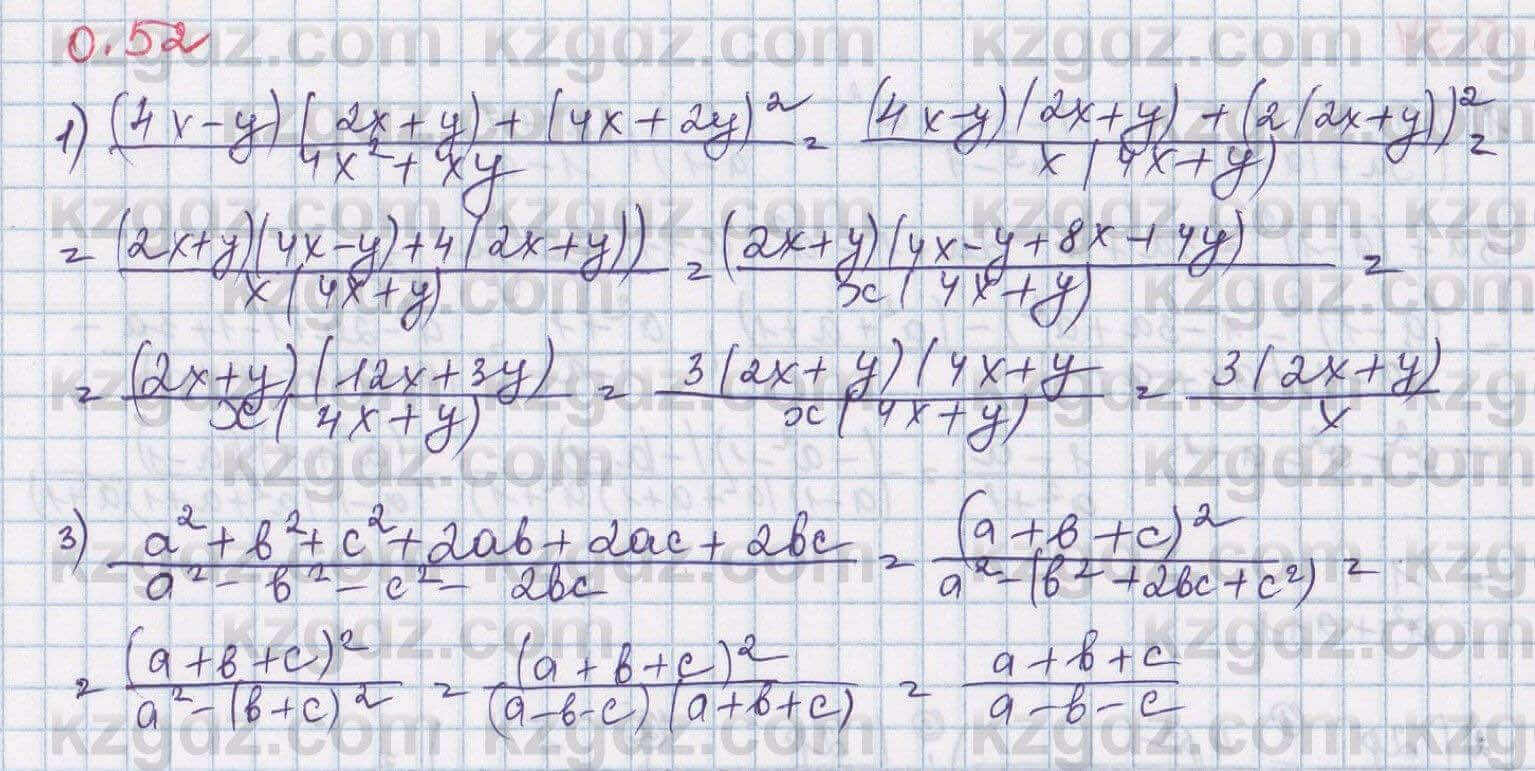 0.52
1) ((4x-y)(2x+y)+(4x+2y)²)/(4x²+xy) = ((4x-y)(2x+y)+(2(2x+y))²)/(x(4x+y)) =
= ((2x+y)(4x-y)+4(2x+y))/(x(4x+y)) = ((2x+y)(4x-y+8x+4y)/(x(4x+y)) =
= ((2x+y)(12x+3y))/(x(4x+y)) = (3(2x+y)(4x+y)/(x(4x+y)) = (3(2x+y))/x
3) (a²+b²+c²+2ab+2ac+2bc)/(a²-b²-c²-2bc) = (a+b+c)²/(a²-(b²+2bc+c²)) =
= (a+b+c)²/(a²-(b+c)²) = (a+b+c)²/((a-b-c)(a+b+c)) = (a+b+c)/(a-b-c)
kzgdz.com